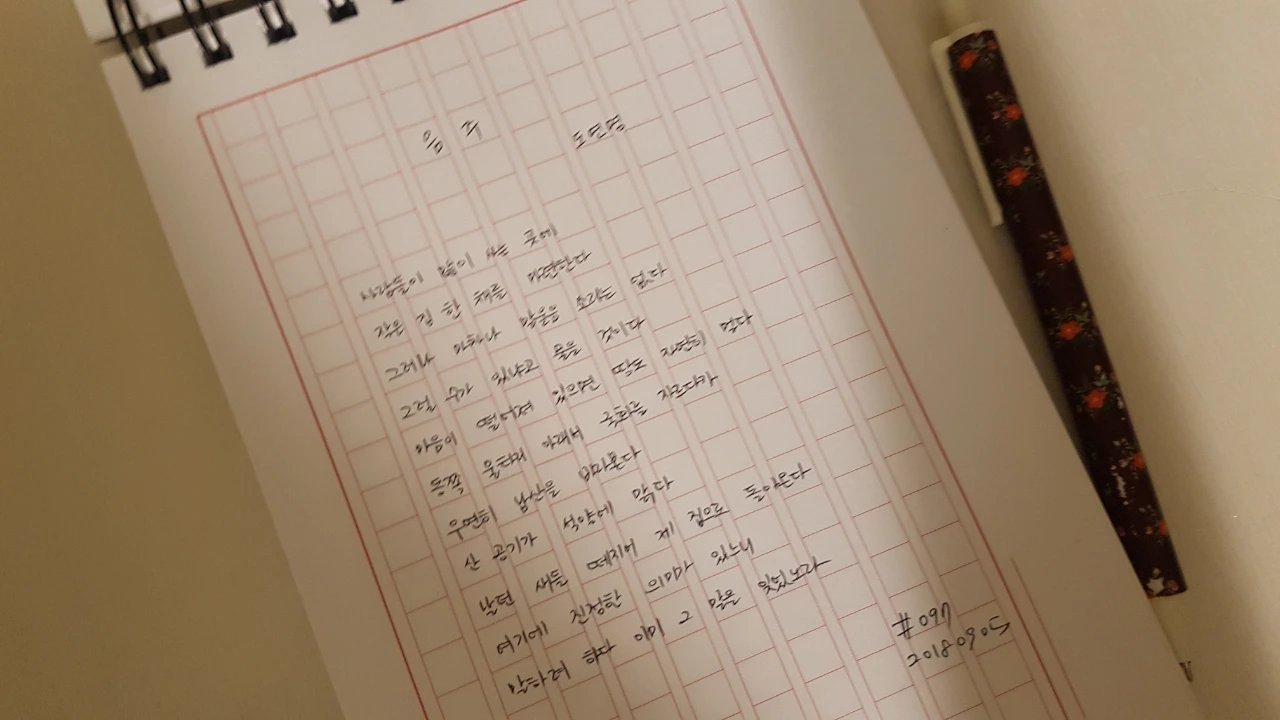 음주 도연명
사람들이 많이 사는 곳에
작은 집 한 채를 마련한다
그러나 마차나 말울음 소리는 없다
그럴 수가 있냐고 물을 것이다
마음이 떨어져 있으면 땅도 자연히 멀다
동쪽 울타리 아래서 국화를 자르다가
우연히 남산을 바라본다
산 공기가 석양에 맑다
날던 새들 떼지어 제 집으로 돌아온다
여기에 진정한 의미가 있느니
말하려 하다 이미 그 말을 잊었노라
#097
20180905